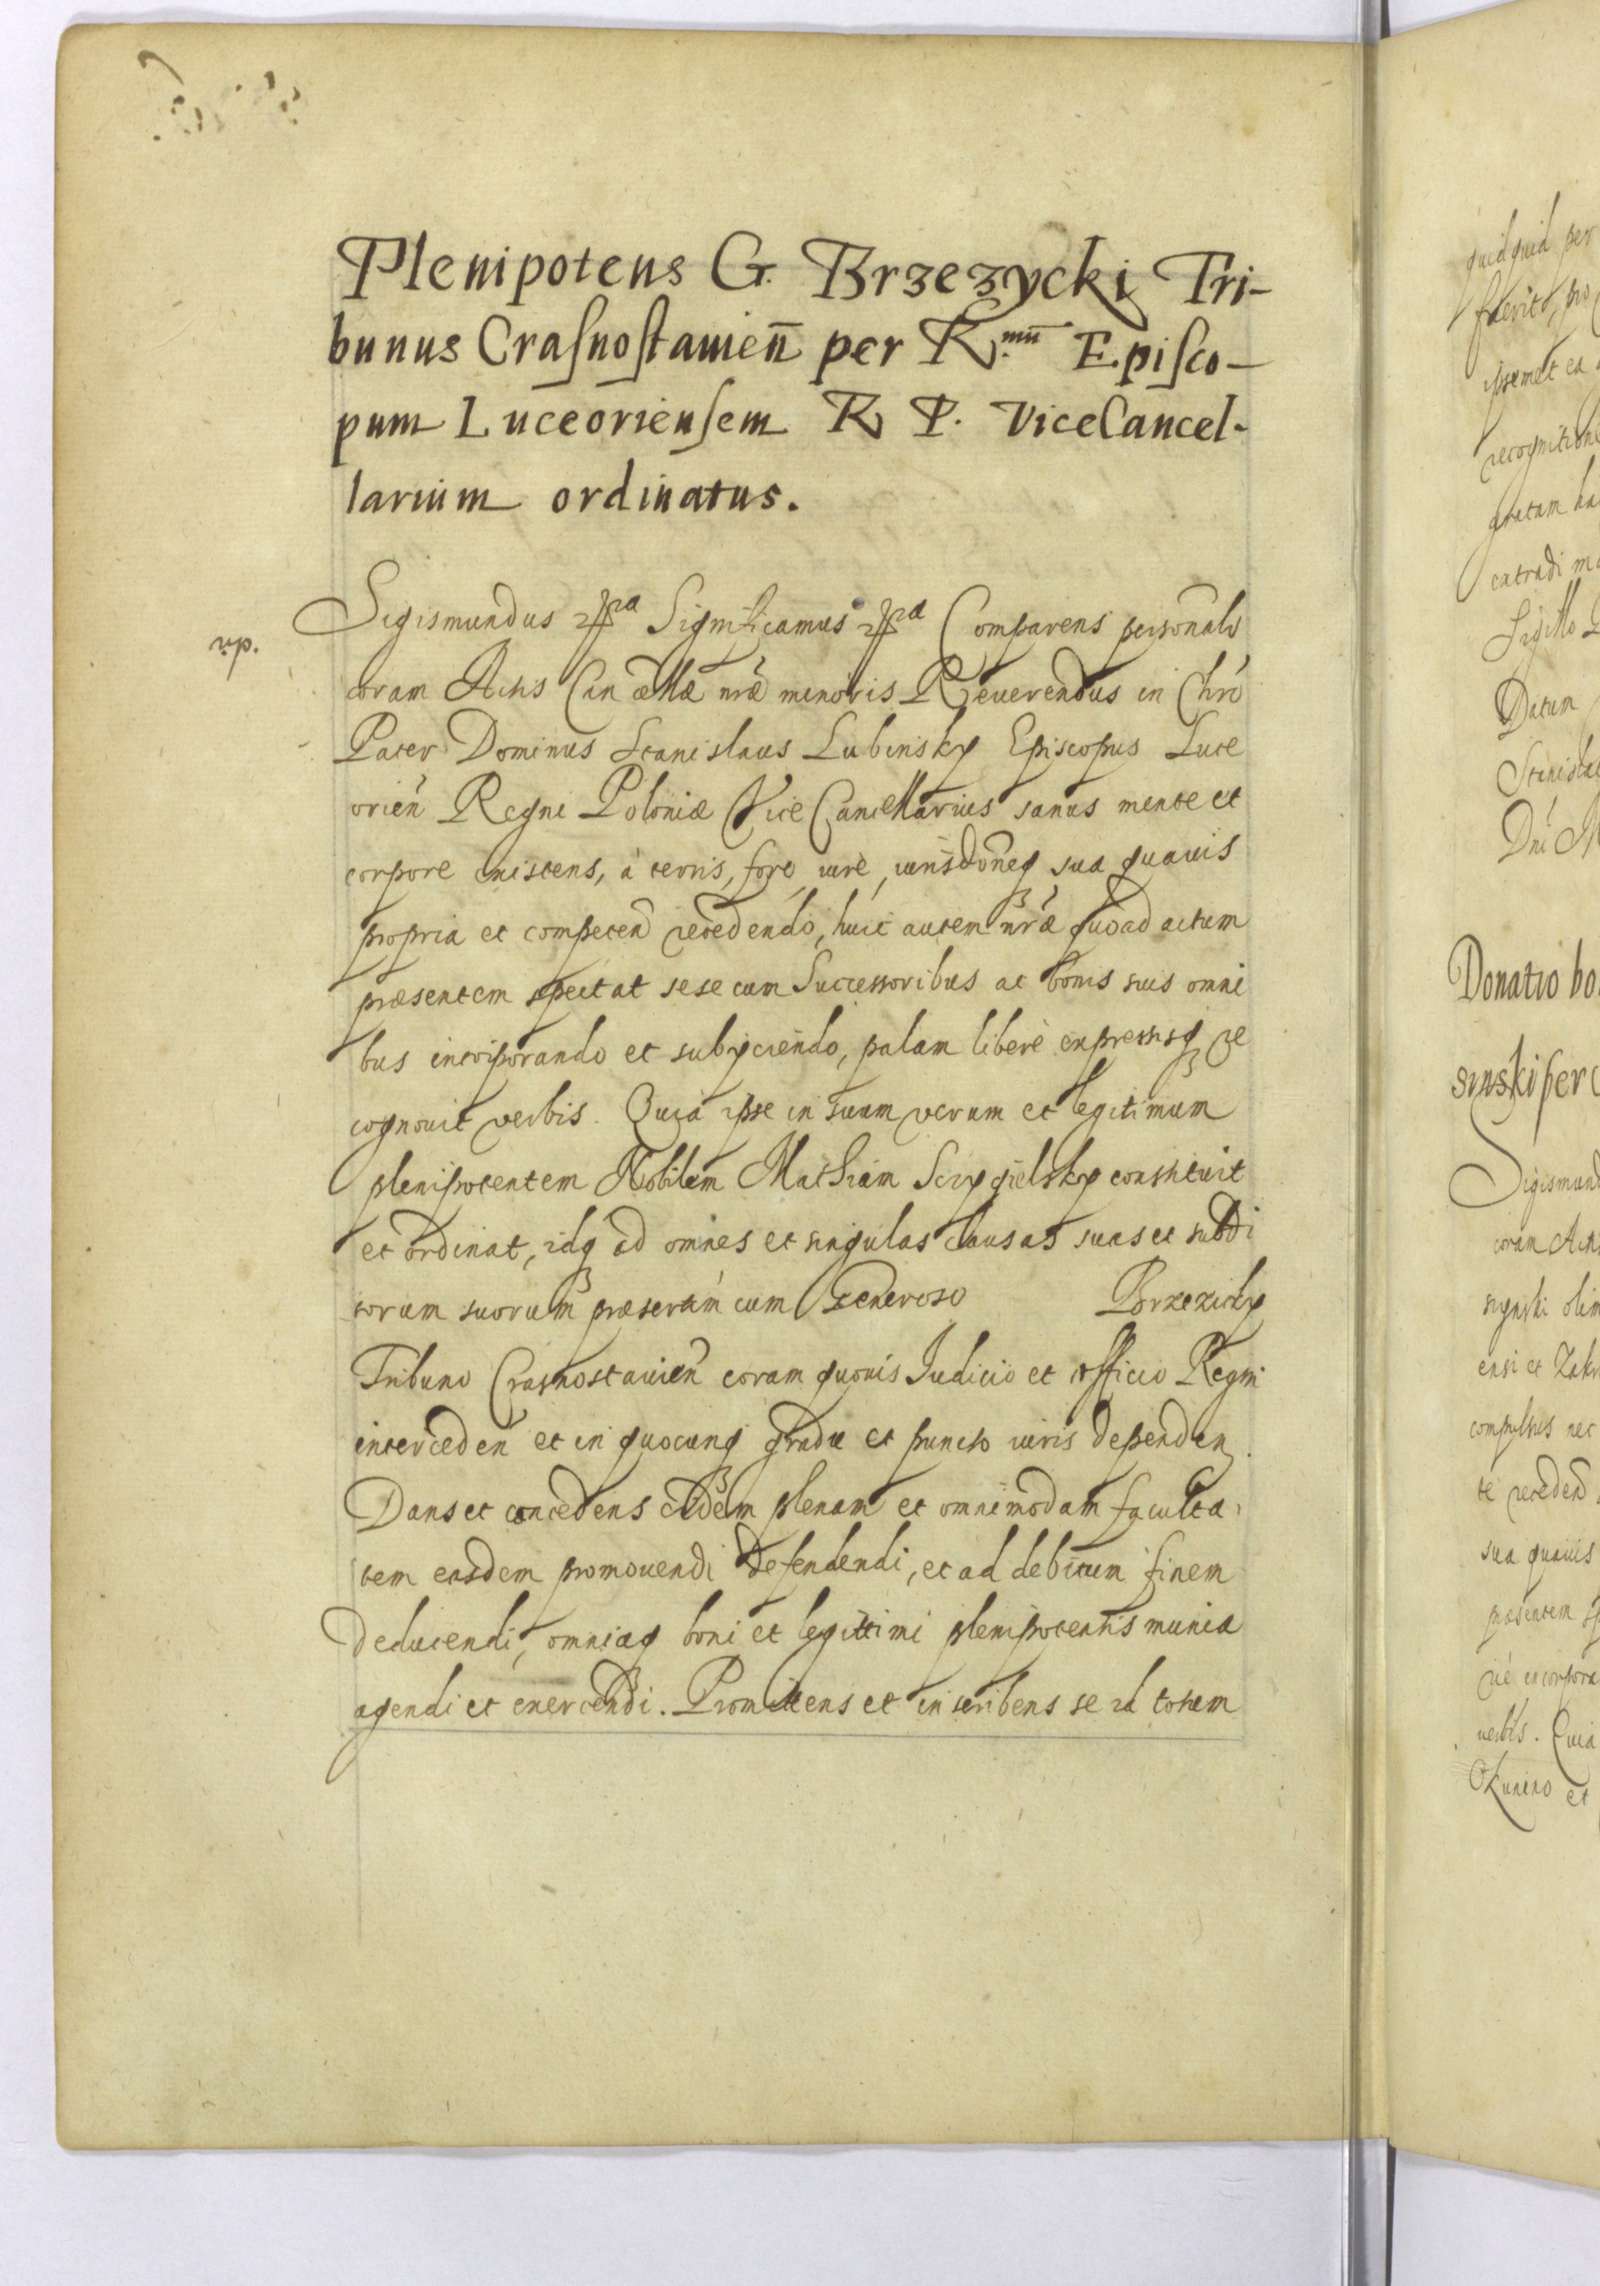 Plenipotens G. Brzezycki Tri-
bunus Craſnoſtauien̄ per R.mū Epiſco-
pum Luceorienſem R P. ViceCancel-
larium ordinatus.
Sigismundus Significamus Comparens personalr̄
coram Actis Cancellæ nr̄æ minoris Reuerendus in Chrō
Pater Dominus Stanislaus Lubinsky Episcopus Luce
orien̄ Regni Poloniæ Vice Cancellarius sanus mente et
corpore existens, à terris, foro iure, iurisdōneq sua quauis
propria et competen̄ recedendo, huic autem nr̄æ quoad actum
præsentem spectat sese cum Successoribus ac bonis suis omni
bus incorporando et subyciendo, palam liberè expressisq re
cognouit verbis. Quia ipse in suum verum et legitimum
plenipotentem Nobilem Mathiam constituit
et ordinat, idq ad omnes et singulas causas suas et subdi
torum suorum præsertim cum Generoso Brzezicky
Tribuno Crasnostauien̄ coram quouis Iudicio et officio Regni
interceden̄ et in quocunq gradu et puncto iuris dependen
Dans et concedens eidem plenam et omnimodam faculta
tem easdem promouendi defendendi, et ad debitum finem
deducendi, omniaq boni et legittimi plenipotentis munia
agendi et exercendi. Promittens et inscribens se id totum
quidquid per
fuerit, pro
ipsemet ea
recognitione
gratam ha
extradi ma
Sigillo
Datum
Stanislai
Dnī M
Donatio bo
sinski per
Sigismund
coram Acti
olim
ensi et Zakr
compulsus nec
te receden̄
sua quauis
præsentem sp
rie incorpora
verbis. Quia
Okunino et